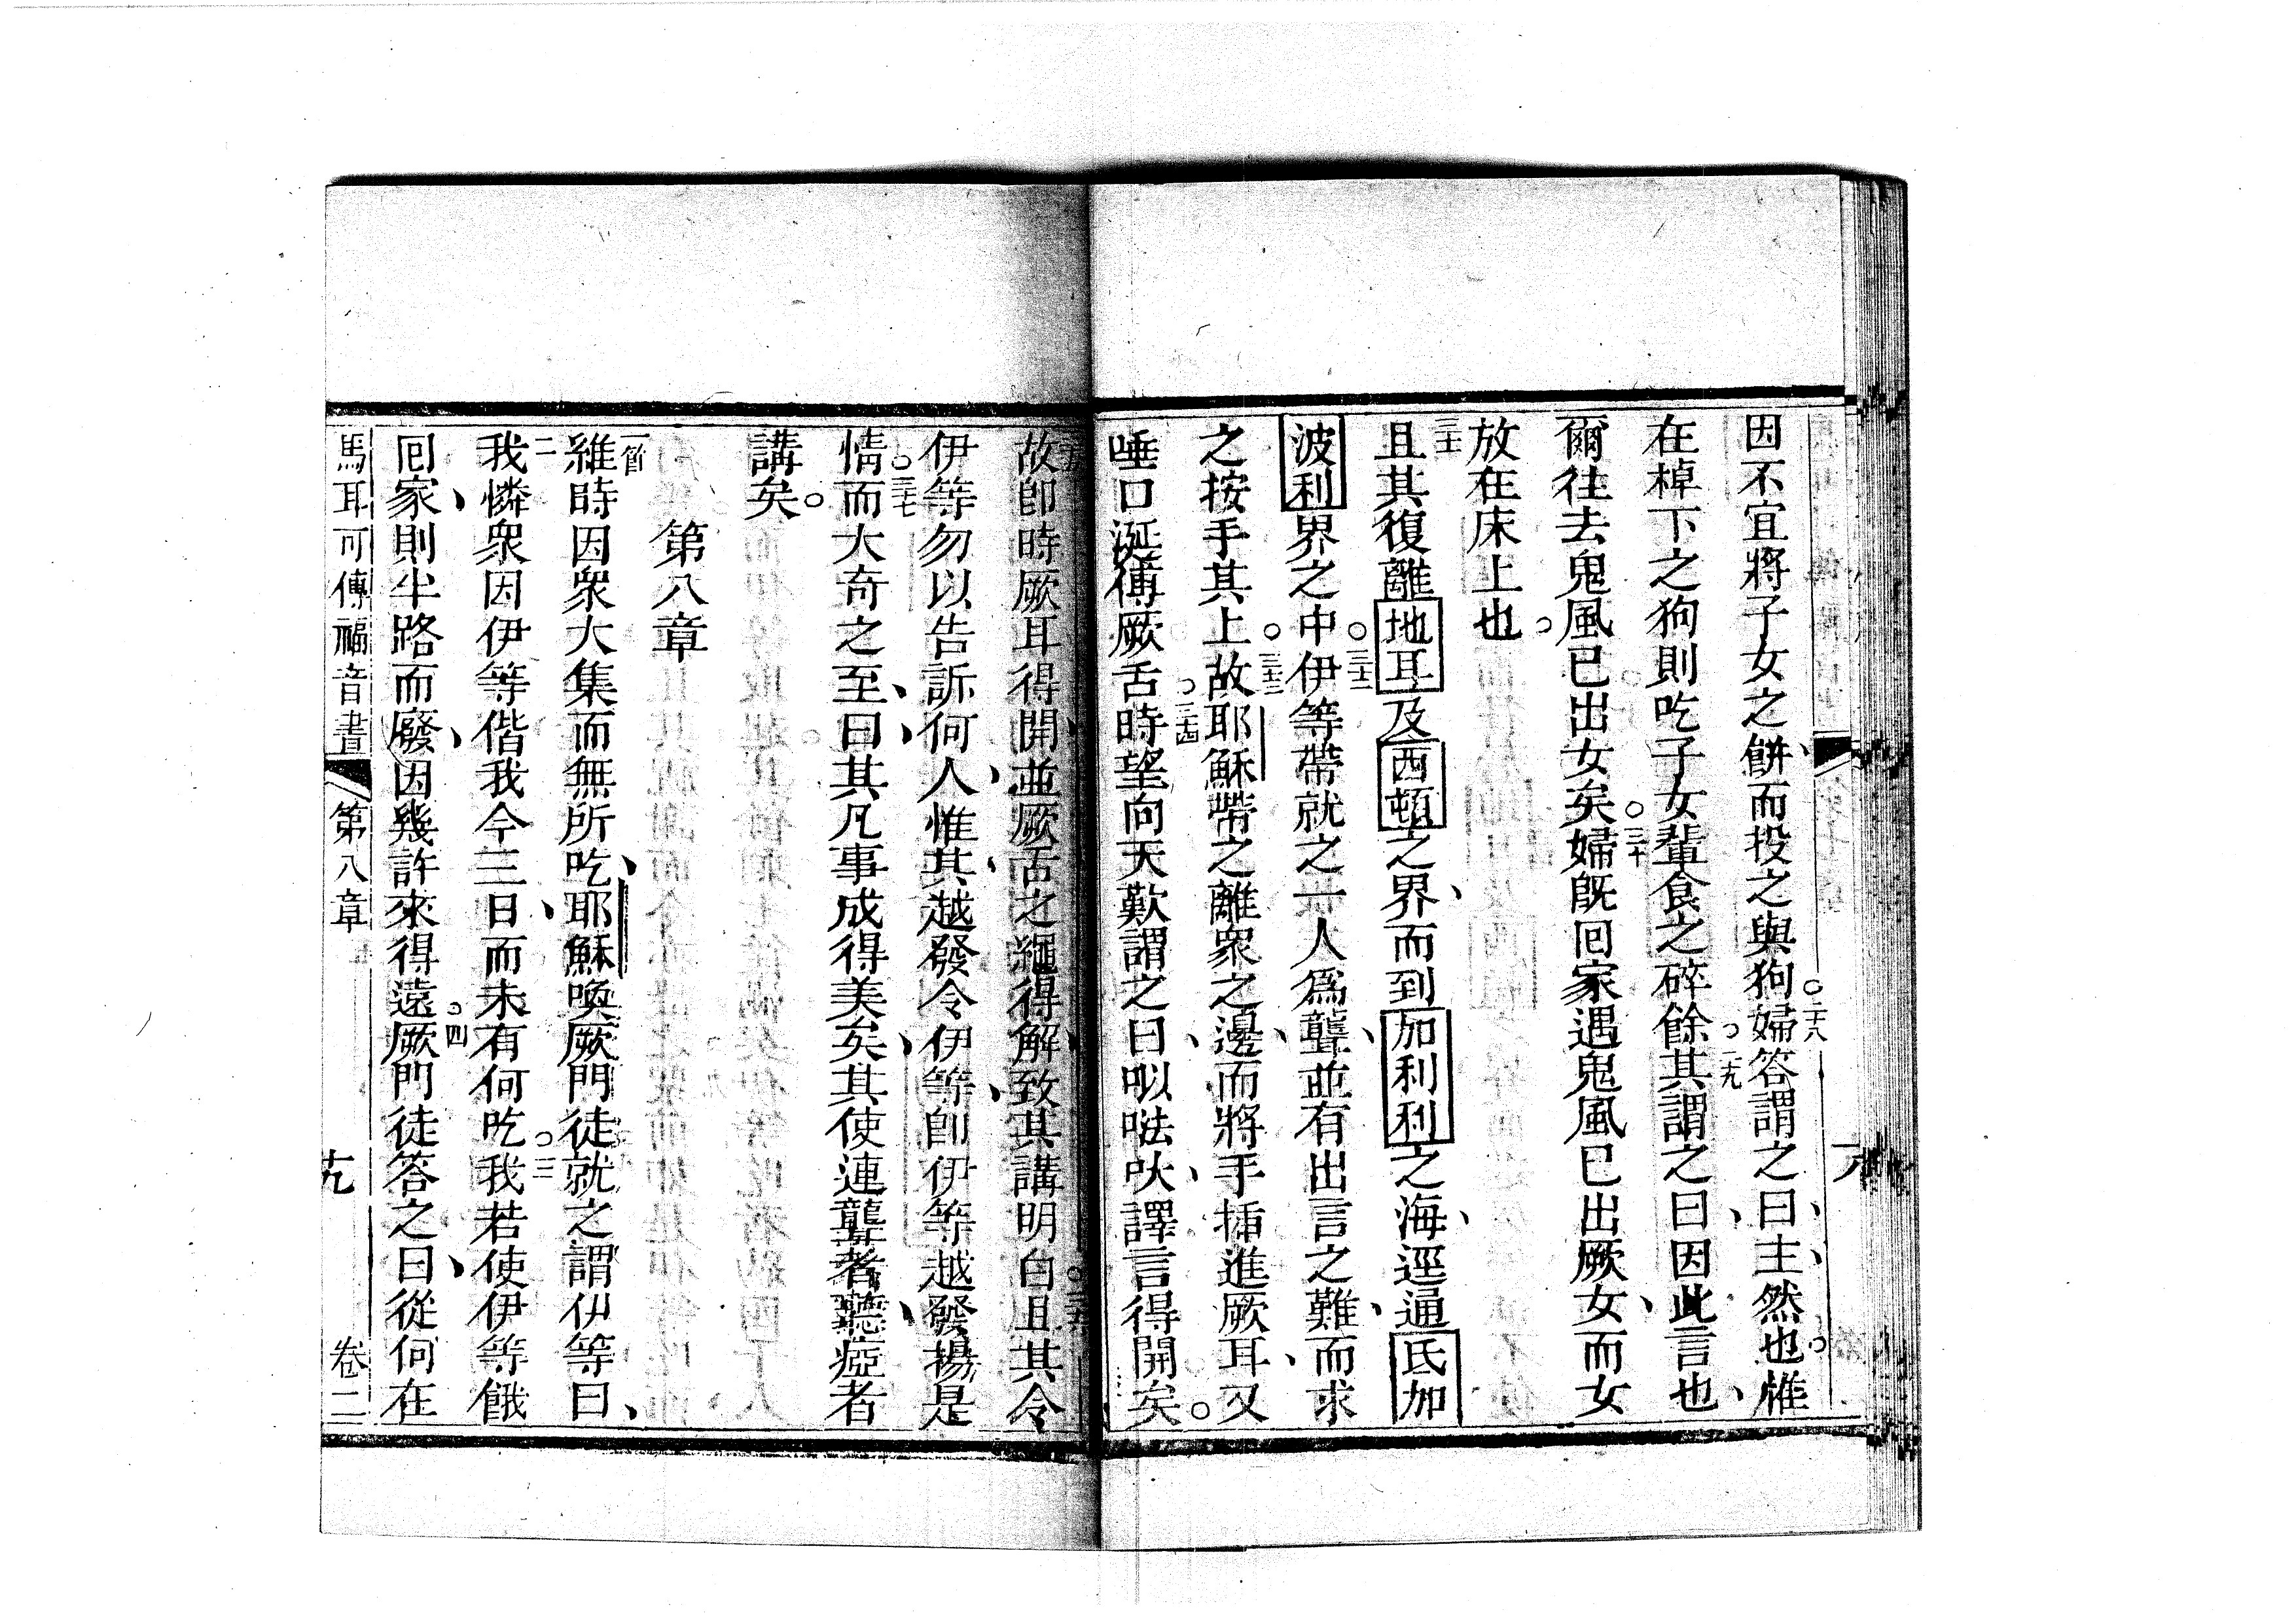 因不宜將子女之餅、而投之與狗。二十八婦答謂之曰、主、然也。惟
在棹下之狗則吃子女輩食之碎餘。二十九其謂之曰、因此言也、
爾往去鬼風已出女矣。三十婦既囘家遇鬼風已出厥女、而女
放在床上也。
三十一且其復離地耳及西頓之界、而到加利利之海、逕通氐加
波利界之中。三十二伊等帶就之一人爲聾、並有出言之難、而求
之按手其上。三十三故耶穌帶之離衆之邊、而將手插進厥耳、又
唾口涎傅厥舌。三十四時望向天歎謂之曰、呬𠵽吠、譯言得開矣。
故卽時厥耳得開、並厥舌之繩得解、致其講明白。三十六且其令
伊等勿以告訴何人、惟其越發令伊等、卽伊等越發揚是
情。三十七而大奇之至、曰、其凡事成得美矣、其使連聾者聽、瘂者
講矣。
第八章
一節維時因衆大集而無所吃、耶穌喚厥門徒就之謂伊等曰、
二我憐衆因伊等偕我今三日、而未有何吃。三我若使伊等餓
囘家、則半路而廢、因幾許來得遠。四厥門徒答之曰、從何在
馬耳可傳福音書 第八章 十九 卷二